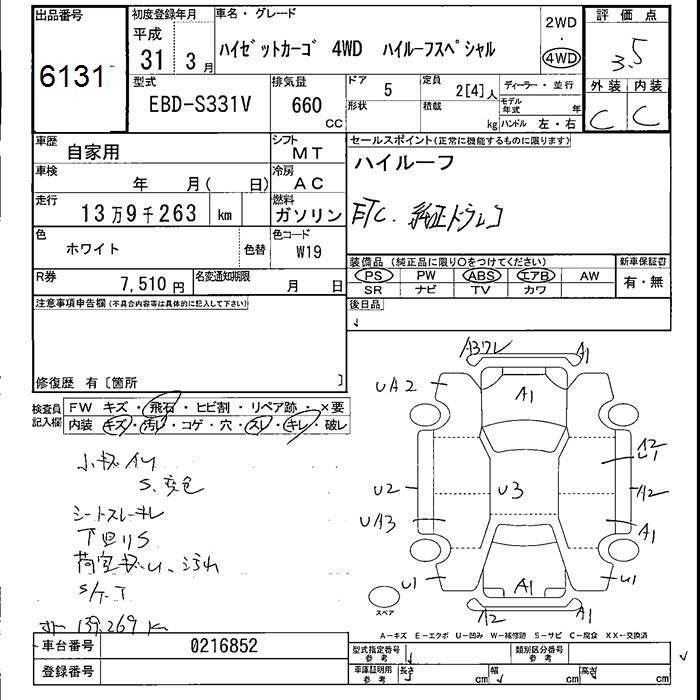 出品番号
6131
初度登録年月
平成
31年 3月
車名・グレード
ハイゼットカーゴ 4WD ハイルーフスペシャル
2WD
・
4WD
評価点
3.5
外装 内装
C C
型式
EBD-S331V
排気量
660
CC
ドア
5
定員
2[4]人
ディーラー・並行
形状
積載
kg
モデル年式
年
ハンドル 左・右
車歴
自家用
シフト
MT
車検
年 月( 日)
冷房
AC
走行
13万9千263 km
燃料
ガソリン
色
ホワイト
色替
色コード
W19
R券
7,510円
名変通知期限
月 日
セールスポイント(正常に機能するものに限ります)
ハイルーフ
ETC. 純正ドラレコ
装備品 (純正品に限り〇をつけてください)
PS PW ABS エアB AW
SR ナビ TV カワ
新車保証書
有・無
後日品
注意事項申告欄(不具合内容等は具体的に記入して下さい)
修復歴 有〔箇所 〕
検査員
記入欄
FW キズ・飛石・ヒビ割・リペア跡・×要
内装 キズ・汚レ・コゲ・穴・スレ・キレ・破レ
S.変色
シートスレキレ
下回りS
139,269 K
A3ワレ
A1
UA2
A1
A2
U1
U2
U3
A2
UA3
A1
U1
A1
U1
A2
A1
スペア
A-キズ E-エクボ U-凹み W-補修跡 S-サビ C-腐食 XX-交換済
車台番号
0216852
登録番号
型式指定番号
参考
類別区分番号
参考
車庫証明用
参考
長さ
cm
幅
cm
高さ
cm